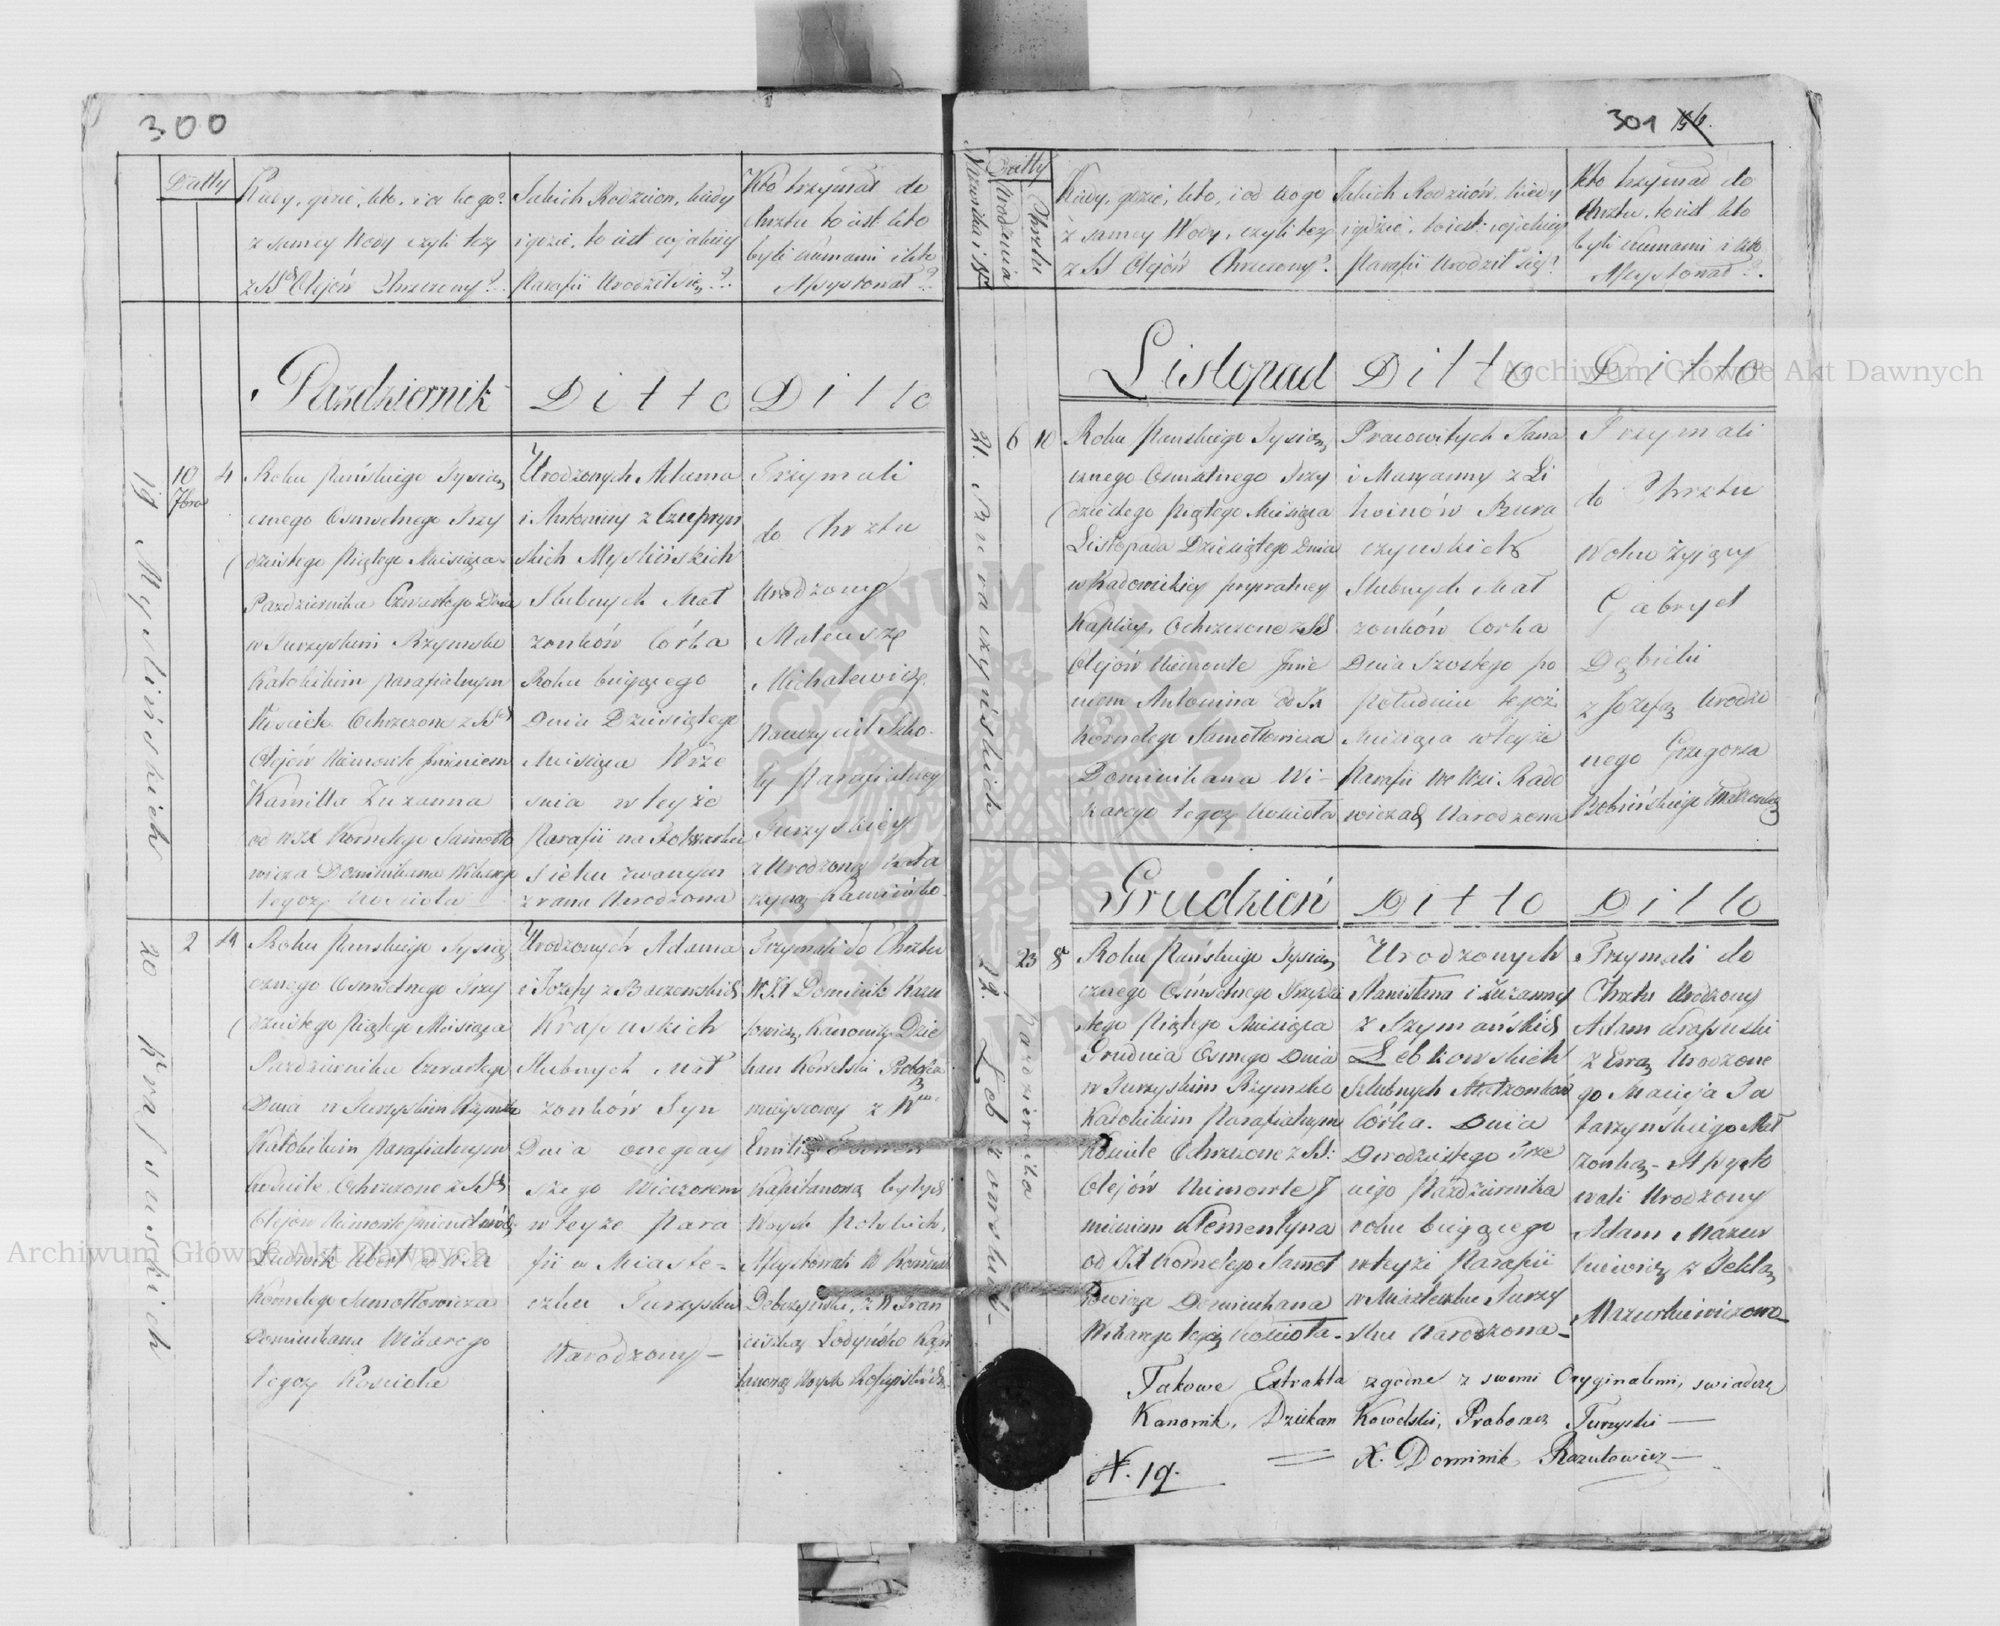 300
Datty
Kiedy, gdzie, kto, i od kogo?
z samey Wody czyli tez
z SS Olejów Chrzczony?
Jakich Rodziców, kiedy
i gdzie, to iest w jakiey
Parafii Urodził się?
Kto trzymał do
Chrztu to iest kto
byli kumami i kto
Assystował?
Pazdziernik
Ditto
Ditto
19 Myslińskich
10
7bra
4
Roku Pańskiego Tysiąc
cznego Osmsetnego Trzy
dziestego Piątego Miesiąca
Pazdziernika Czwartego Dnia
w Turzyskim Rzymsko
Katolickim Parafialnym
Kościele Ochrzczone z SS
Olejów Niemowle Imieniem
Kamilla Zuzanna
od WJX Kornelego Samotło
wicza Dominikana Wikarego
tegoz Kościoła
Urodzonych Adama
i Antoniny z Czupryń
skich Myslińskich
Slubnych Mał
zonków Córka
Roku bieżącego
Dnia Dziesiątego
Miesiąca Wrze
snia w teyże
Parafii na
Sieku zwanym
z rana Urodzona
Trzymali
do Chrztu
Urodzony
Mateusz
Michalewicz
Nauczyciel Szko-
ły Parafialney
Turzyskiey
z Urodzoną Kata
rzyną
20 Krasuskich
2
4
Roku Pańskiego Tysiąc
cznego Osmsetnego Trzy
dziestego Piątego Miesiąca
Pazdziernika Czwartego
Dnia w Turzyskim Rzymsko
Katolickim Parafialnym
Kościele Ochrzczone z SS
Olejów Niemowle
Ludwik
Kornelego Samotłowicza
Dominikana Wikarego
tegoz Kościoła
Urodzonych Adama
i Józefy z Baczewskich
Krasuskich
Slubnych Mał
zonków Syn
Dnia onegday
szego Wieczorem
w teyze Para
fii w Miaste-
czku Turzysku
Narodzony-
Trzymali do Chrztu
WJX Dominik Razu
towicz, Kanonik, Dzie
kan Kowelski Proboszcz
mieyscowy z W
Emilią
Kapitanową byłych
Woysk Polskich,
Assystowali W
z W Fran
ciszką
Woysk
301
Datty
Nazwiska i Nr
Urodzenia
Chrztu
Kiedy, gdzie, kto, i od kogo
z samey Wody, czyli tez
z SS Olejów Chrzczony?
Jakich Rodziców, kiedy
i gdzie, to iest w jakiey
Parafii Urodził się?
Kto trzymał do
Chrztu, to iest kto
byli kumami i kto
Assystował?
Listopad
Ditto
Ditto
21. Buraczyńskich
6
10
Roku Pańskiego Tysiąc
cznego Osmsetnego Trzy
dziestego Piątego Miesiąca
Listopada Dziesiątego Dnia
w Radowickiey prywatney
Kaplicy Ochrzczone z SS
Olejów Niemowle Imie
niem Antonina od JX
Kornelego Samotłowicza
Dominikana Wi-
karego tegoz Kościoła
Pracowitych Jana
i Maryanny z Li
twinów Bura
czyńskich
Slubnych Mał
zonków Córka
Dnia Szostego po
południu tegoż
Miesiąca w teyże
Parafii we Wsi Rado
wiczach Narodzona
Trzymali
do Chrztu
Woluo żyjący
Gabryel
Dębicki
z Jozefą Urodzo
nego Grzegorza
Bobińskiego
Grudzień
Ditto
Ditto
22. Lebkowskich
23
Pazdziernika
8
Roku Pańskiego Tysiąc
cznego Osmsetnego Trzydzie
stego Piątego Miesiąca
Grudnia Osmego Dnia
w Turzyskim Rzymsko
Katolickim Parafialnym
Kościele Ochrzczone z SS:
Olejów Niemowle I
mieniem Klementyna
od JX Kornelego Samot
łowicza Dominikana
Wikarego tegoz Kościoła-
Urodzonych
Stanisława i Zuzanny
z Szymańskich
Lebkowskich
Slubnych Małzonków
Córka. Dnia
Dwodziestego Trze
ciego Pazdziernika
roku bieżącego
w teyże Parafii
w Miasteczku Turzy
sku Narodzona-
Trzymali do
Chrztu Urodzony
Adam Krasuski
z Ewą Urodzone
go Macieja Ta
tarzyńskiego Mał
zonką- Assysto
wali Urodzony
Adam Mazur
kiewicz z Teklą
Mazurkiewiczową-
Takowe Extrakta zgodne z swemi Oryginalami, swiadczę
Kanonik, Dziekan Kowelski, Proboszcz Turzyski-
X. Dominik Razutowicz-
N. 19.
Archiwum Główne Akt Dawnych
Archiwum Główne Akt Dawnych